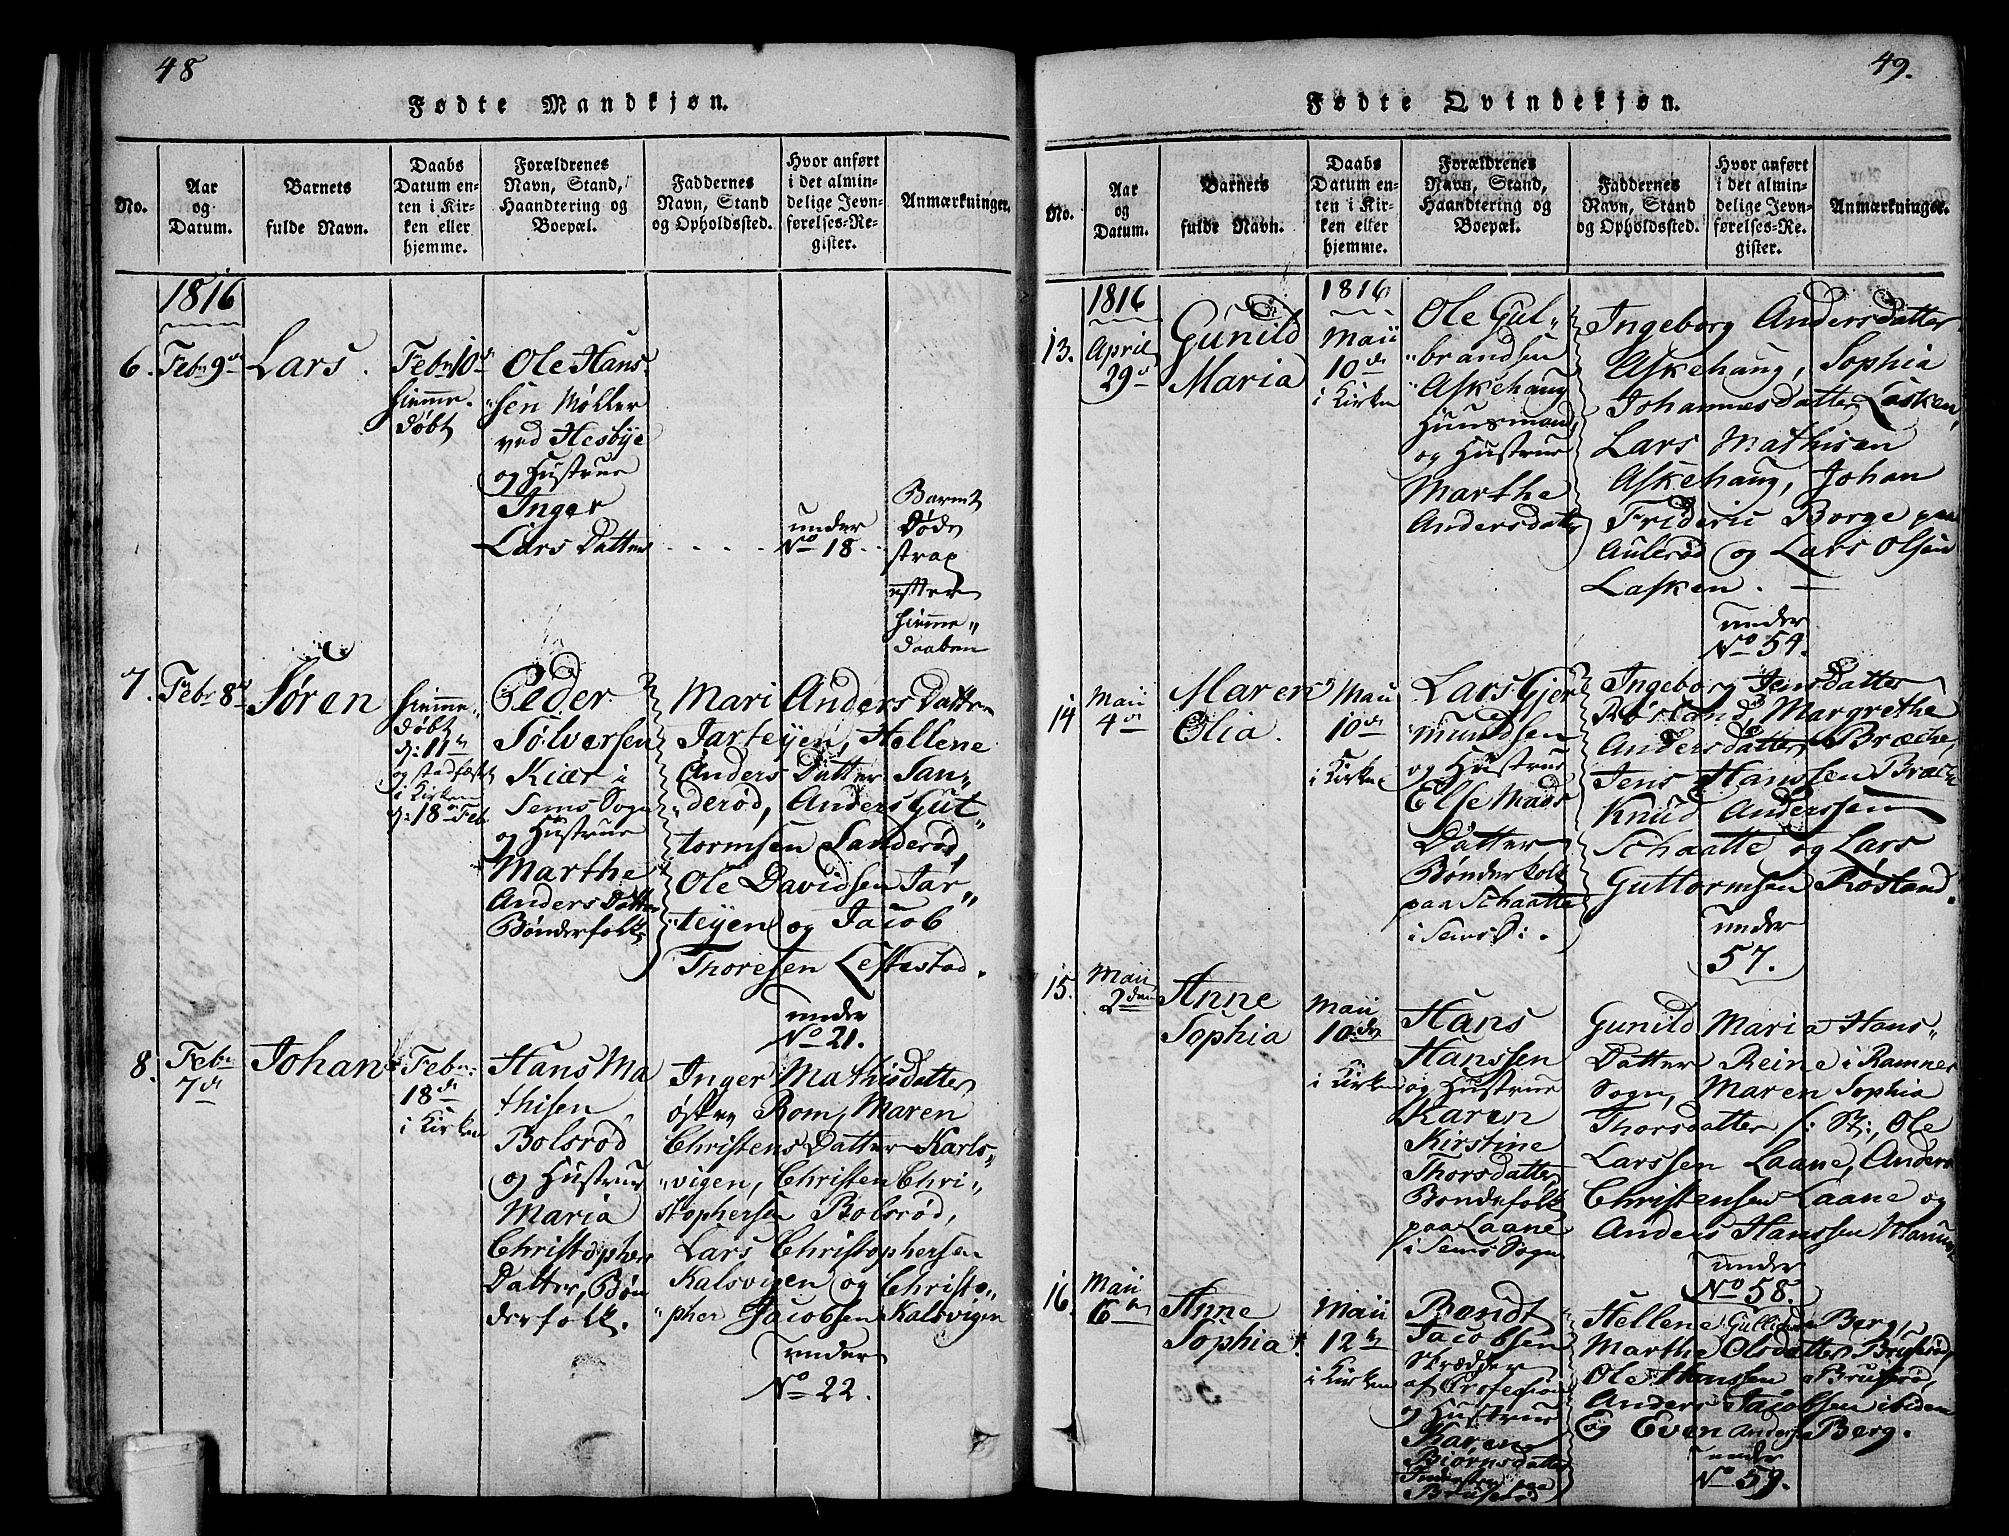 48
Fødte Mandkjøn.
No.
Aar
og
Datum.
Barnets
fulde Navn.
Daabs
Datum en-
ten i Kir-
ken eller
hjemme.
Forældrenes
Navn, Stand,
Haandtering og
Boepæl.
Faddernes
Navn, Stand
og Opholdssted.
Hvor anført
i det almin-
delige Jevn-
førelses-Re-
gister.
Anmærkninger.
1816
6.
Febr 9de
Lars.
Febr 10de
hiemme-
døbt
Ole Hans-
sen Møller
ved Hesbye
og Hustrue
Inger
Lars Datter
under
No 18
Barnet
Døde
strax
efter
hiemme-
daaben
7.
Febr 8de
Søren
hiemme-
døbt
d: 11te
og stadfæst
i Kirken
d: 18 Feb
Peder
Sølversen
Kiær i
Sems Sogn
og Hustrue
Marthe
Anders Datter
Bønderfolk
Mari Anders Datter
Jarteyen, Hellene
Anders Datter San-
derød, Anders Gut-
tormsen Sanderød,
Ole Davidsen Jar-
teyen og Jacob
Thoresen Leftestad.
under
No 21.
8.
Febr
7de
Johan
Febr:
18de
i Kirken
Hans Ma
thisen
Bolsrød
og Hustrue
Maria
Christopher
Datter, Bøn
derfolk.
Inger Mathisdatter
østre Rom, Maren
Christens Datter Karls-
vigen, Christen Chri-
stophersen Bolsrød,
Lars Christophersen
Kalsvigen og Christo-
pher Jacobsen Kalsvigen
under
No 22.
49.
Fødte Qvindekjøn.
No.
Aar
og
Datum.
Barnets
fulde Navn.
Daabs
Datum en-
ten i Kir-
ken eller
hjemme.
Forældrenes
Navn, Stand,
Haandtering og
Boepæl.
Faddernes
Navn, Stand
og Opholdssted.
Hvor anført
i det almin-
delige Jevn-
førelses-Re-
gister.
Anmærkninger.
1816
13.
April
29de
Gunild
Maria
1816
Maii
10de
i Kirken
Ole Gul-
brandsen
Askehaug
Huusmand,
og Hustrue
Marthe
Andersdatter
Ingeborg Andersdatter
Askehaug, Sophia
Johannesdatter Lasken,
Lars Mathisen
Askehaug, Johan
Frideric Borge paa
Aulerød og Lars Olsen
Lasken.
under
No 54.
14
Maii
4de
Maren
Olia.
Maii
10de
i Kirken
Lars Gjer
mundsen
og Hustrue
Else Mads
Datter
Bønderfolk
paa Schaatte
i Sems S:.
Ingeborg Jensdatter
Røsland, Margrethe
Andersdatter Bræche,
Jens Hanssen Bræche
Knud Anderssen
Schaatte og Lars
Guttormsen Røsland.
under
57.
15.
Maii
2den
Anne
Sophia
Maii
10de
i Kirken
Hans
Hanssen
og Hustrue
Karen
Kirstine
Thorsdatter
Bøndefolk
paa Laane
i Sems Sogn
Gunild Maria Hans-
Datter Reine i Ramnes
Sogn, Maren Sophia
Thorsdatter /: St:, Ole
Larssen Laane, Anders
Christensen Laane og
Anders Hanssen
under
No 58.
16.
Maii
6te
Anne
Sophia
Maii
12te
i Kirken
Bendt
Jacobsen
Skrædder
af Profession
og Hustrue
Karen
Biørnsdatter
paa
Bruserød
Hellene Berg,
Marthe Olsdatter Bruserød,
Ole Hanssen Bruserød,
Anders Jacobsen ibidem
og Even Anders Berg.
under
No 59.